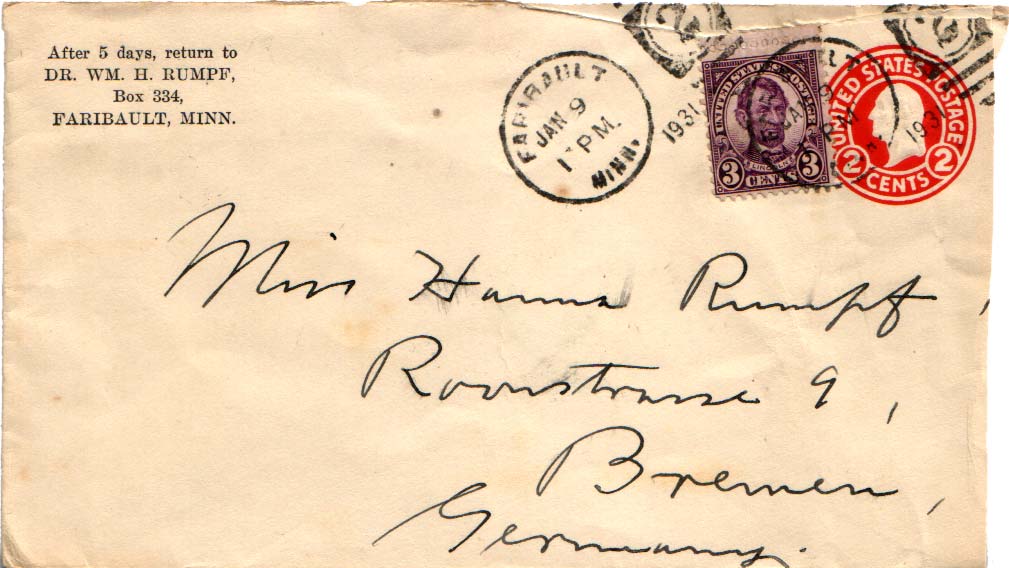 After 5 days, return to
DR. WM. H. RUMPF,
Box 334,
FARIBAULT, MINN.
FARIBAULT
JAN 9
PM.
MINN.
1931
UNITED STATES POSTAGE
LINCOLN
3 CENTS 3
UNITED STATES POSTAGE
2 CENTS 2
1931
Miss Hanna Rumpf,
Roonstrasse 9,
Bremen,
Germany.